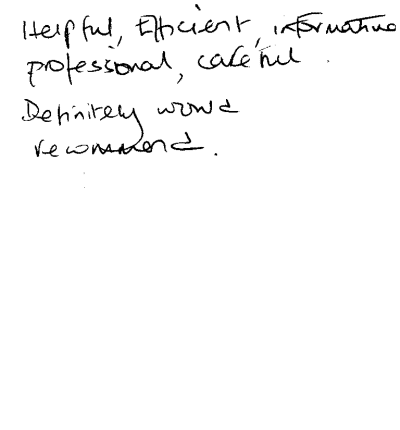 Helpful, Efficient, informative
professional, careful.
Definitely would
recommend.